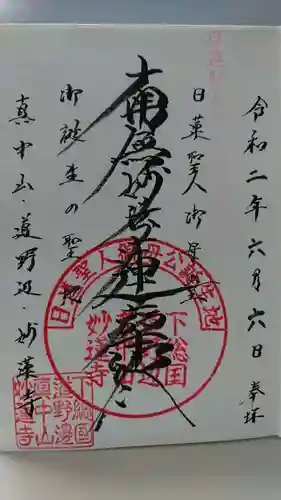 令和二年六月六日 奉拝
日蓮聖人御母堂
南無妙法蓮華経
御誕生の聖地
真中山・道野辺・妙蓮寺
日蓮聖人御母公誕生地
下総国
妙蓮寺
下総国
道野邊
真中山
妙蓮寺